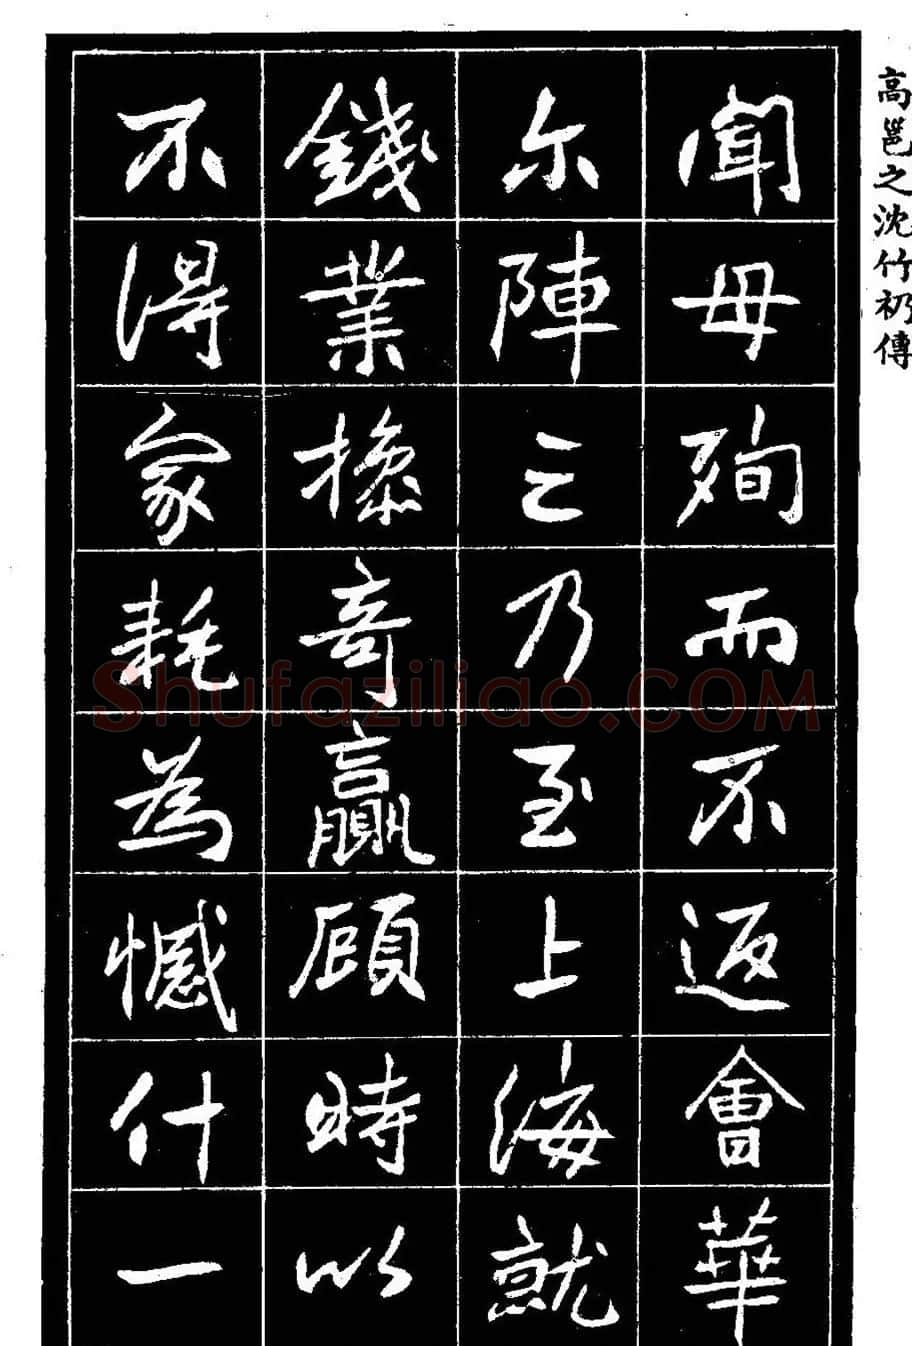 高邕之沈竹礽傳
聞母殉而不返會華
尔陣亡乃至上海就
錢業操奇贏顧時以
不得家耗為憾什一
Shufaziliao.COM